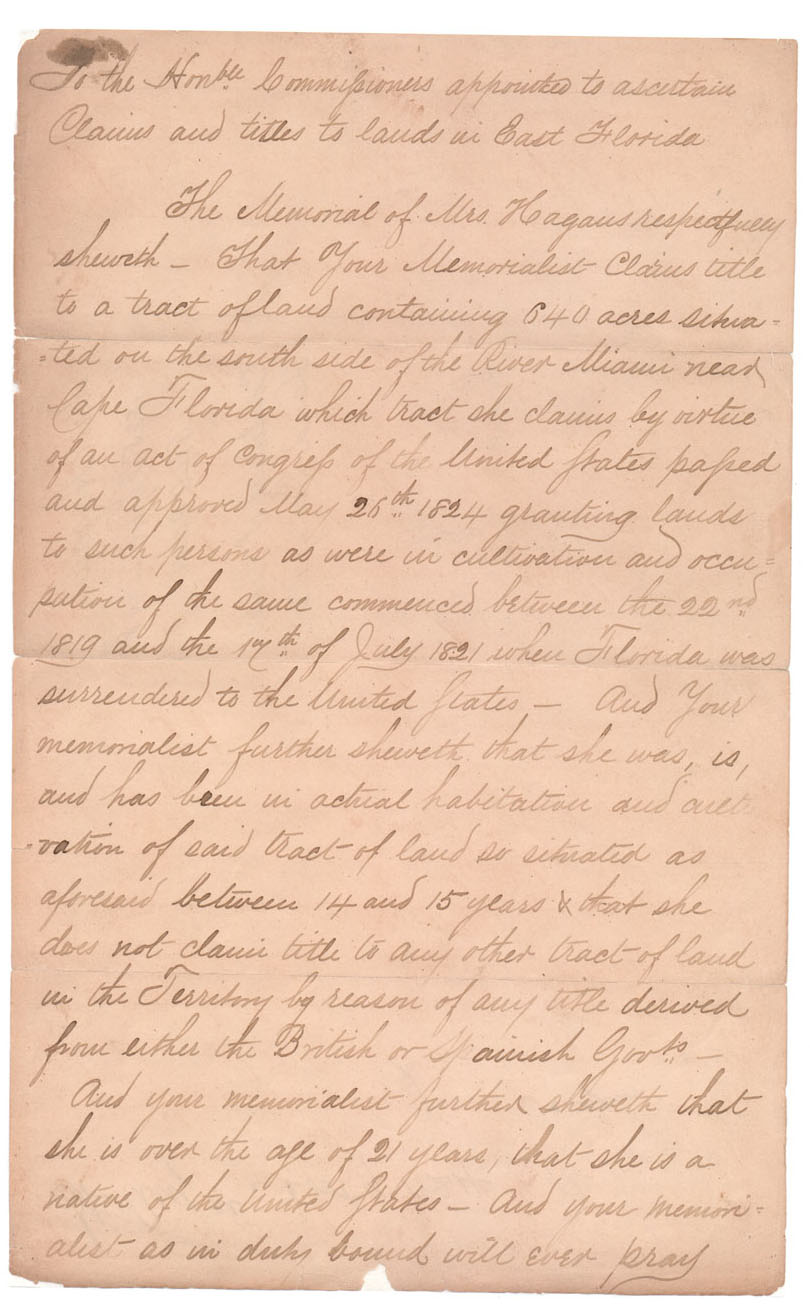 To the Honble. Commissioners appointed to ascertain
Claims and titles to lands in East Florida
The Memorial of Mrs. Hagans respectfully
sheweth – That Your Memorialist Claims title
to a tract of land containing 640 acres situa-
=ted on the south side of the River Miami near
Cape Florida which tract she claims by virtue
of an act of Congress of the United States passed
and approved May 26th 1824 granting lands
to such persons as were in cultivation and occu=
pation of the same commenced between the 22nd
1819 and the 17th of July 1821 when Florida was
surrendered to the United States – And Your
memorialist further sheweth that she was, is,
and has been in actual habitation and culti
-vation of said tract of land so situated as
aforesaid between 14 and 15 years & that she
does not claim title to any other tract of land
in the Territory by reason of any title derived
from either the British or Spanish Govts –
And your memorialist further sheweth that
she is over the age of 21 years, that she is a
native of the United States – And your memori=
alist as in duty bound will ever pray